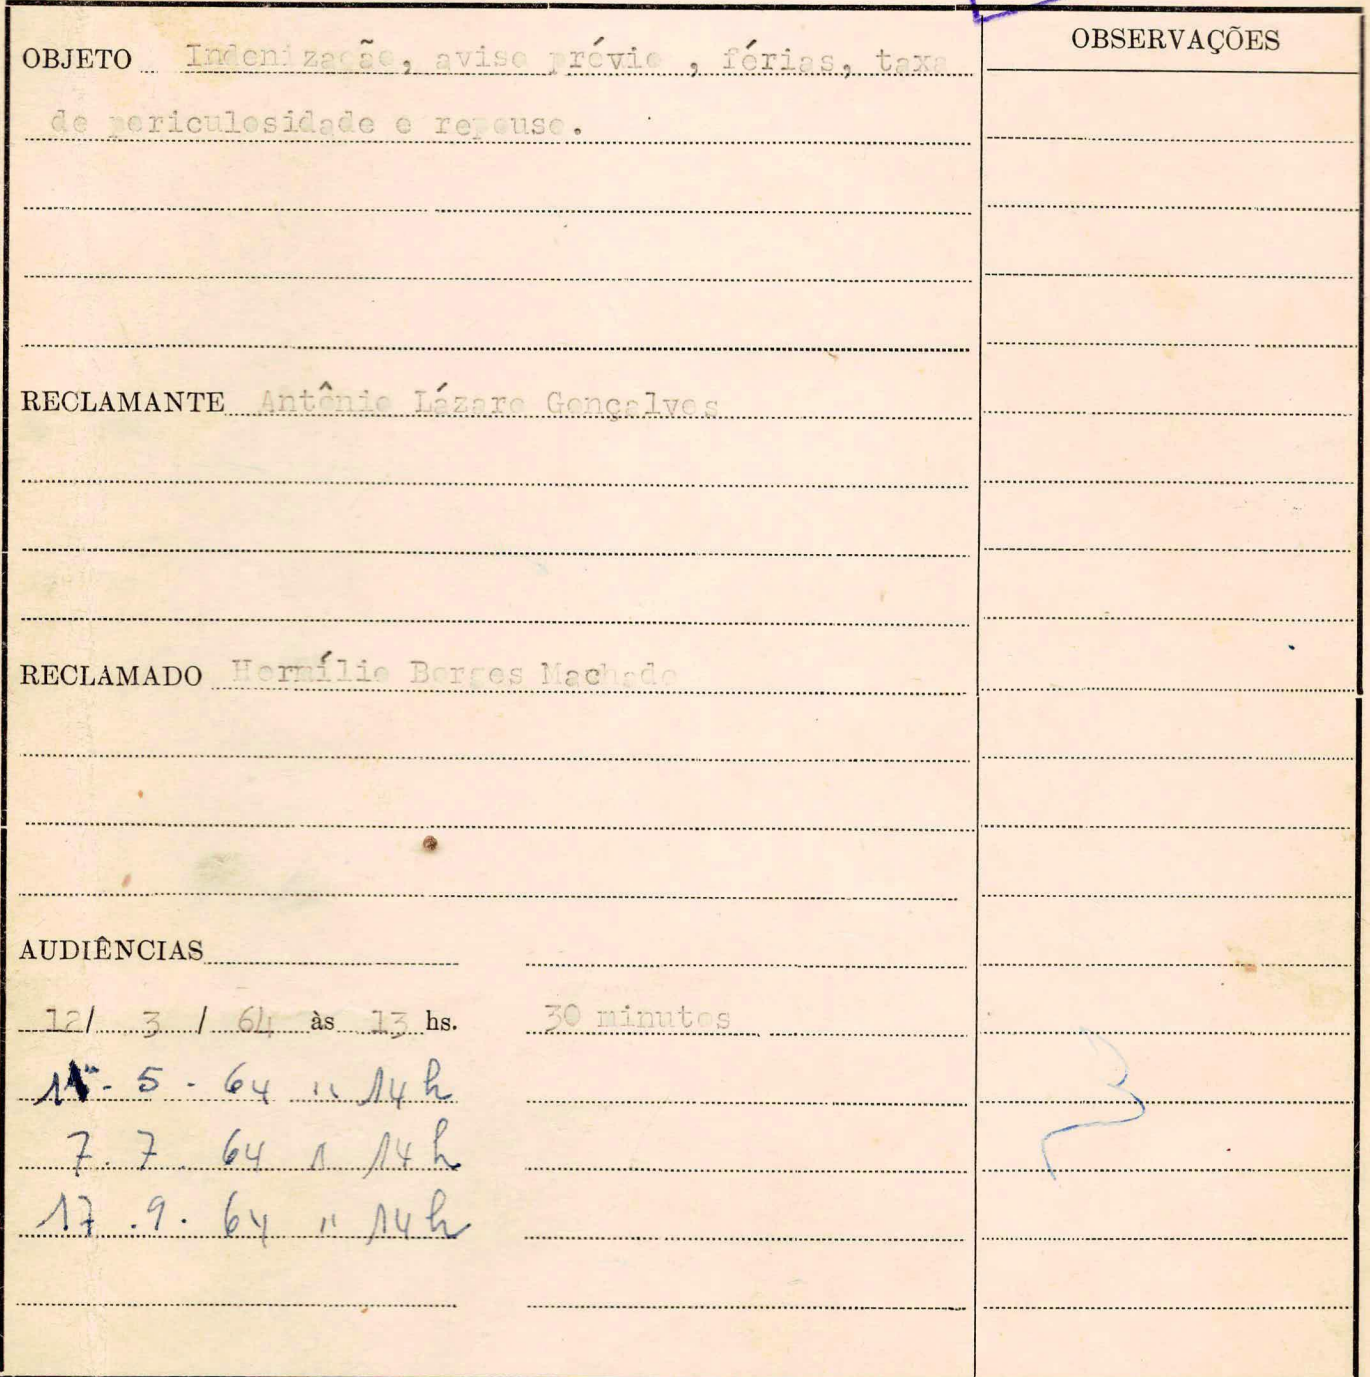 OBSERVAÇÕES
OBJETO Indenização, aviso prévio , férias, taxa
de periculosidade e repouso.
RECLAMANTE Antônio Lázaro Gonçalves
RECLAMADO Hermílio Borges Machado
AUDIÊNCIAS
12/ 3 / 64 às 13 hs. 30 minutos
- 5 - 64 " 14 h
7. 7. 64 " 14 h
17 . 9 . 64 " 14 h